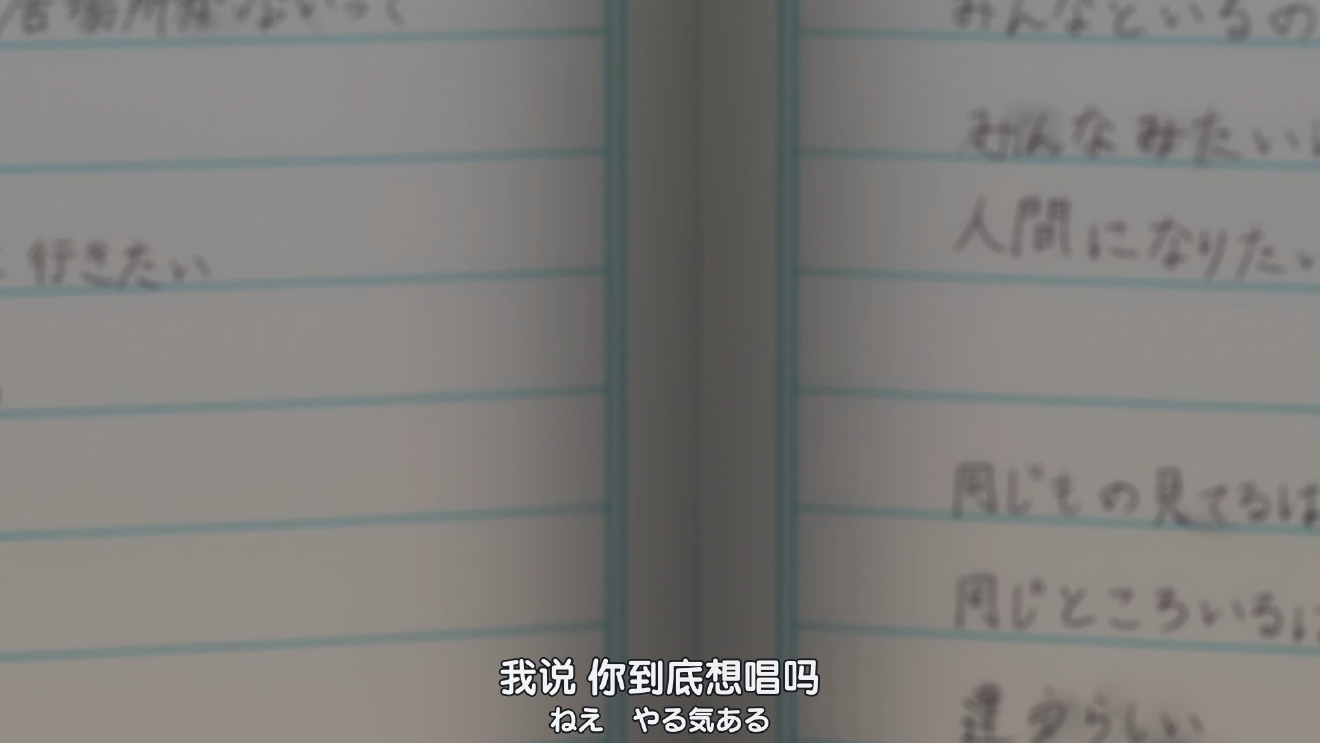 行きたい
みんなといるの
みんなみたいに
人間になりたい
同じもの見てるは
同じところいるは
違うらしい
我说 你到底想唱吗
ねえ やる気ある